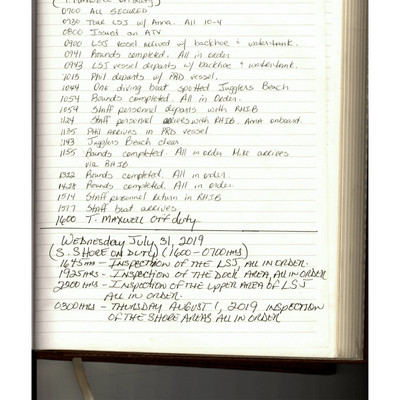 (T. Maxwell on duty)
0700 All Secured
0730 Tour LSJ w/ Anna. All 10-4
0800 Issued an ATV
0900 LSJ vessel arrived w/ backhoe & watertank.
0941 Rounds completed. All in order
0943 LSJ vessel departs w/ backhoe & watertank.
1015 Phil departs w/ PRD vessel.
1044 One diving boat spotted Jugglers Beach
1054 Rounds completed. All in Order.
1059 Staff personnel departs with RHIB
1124 Staff personnel arrives with RHIB. Anna onboard.
1135 Phil Arrives in PRD vessel
1143 Jugglers Beach clear
1155 Rounds completed. All in order. Mike arrives
via RHIB
1322 Rounds completed. All in order.
1428 Rounds completed. All in order.
1514 Staff personnel Return in RHIB
1577 Staff boat arrives.
1600 T. Maxwell off duty
Wednesday July 31, 2019
(S. SHORE ON DUTY) (1600-0700HRS)
1645HRS - INSPECTION OF THE LSJ, ALL IN ORDER.
1925HRS - INSPECTION OF THE DOCK AREA, ALL IN ORDER
2200HRS - INSPECTION OF THE UPPER AREA OF LSJ
ALL IN ORDER.
0300HRS - THURSDAY AUGUST 1, 2019 INSPECTION
OF THE SHORE AREAS ALL IN ORDER